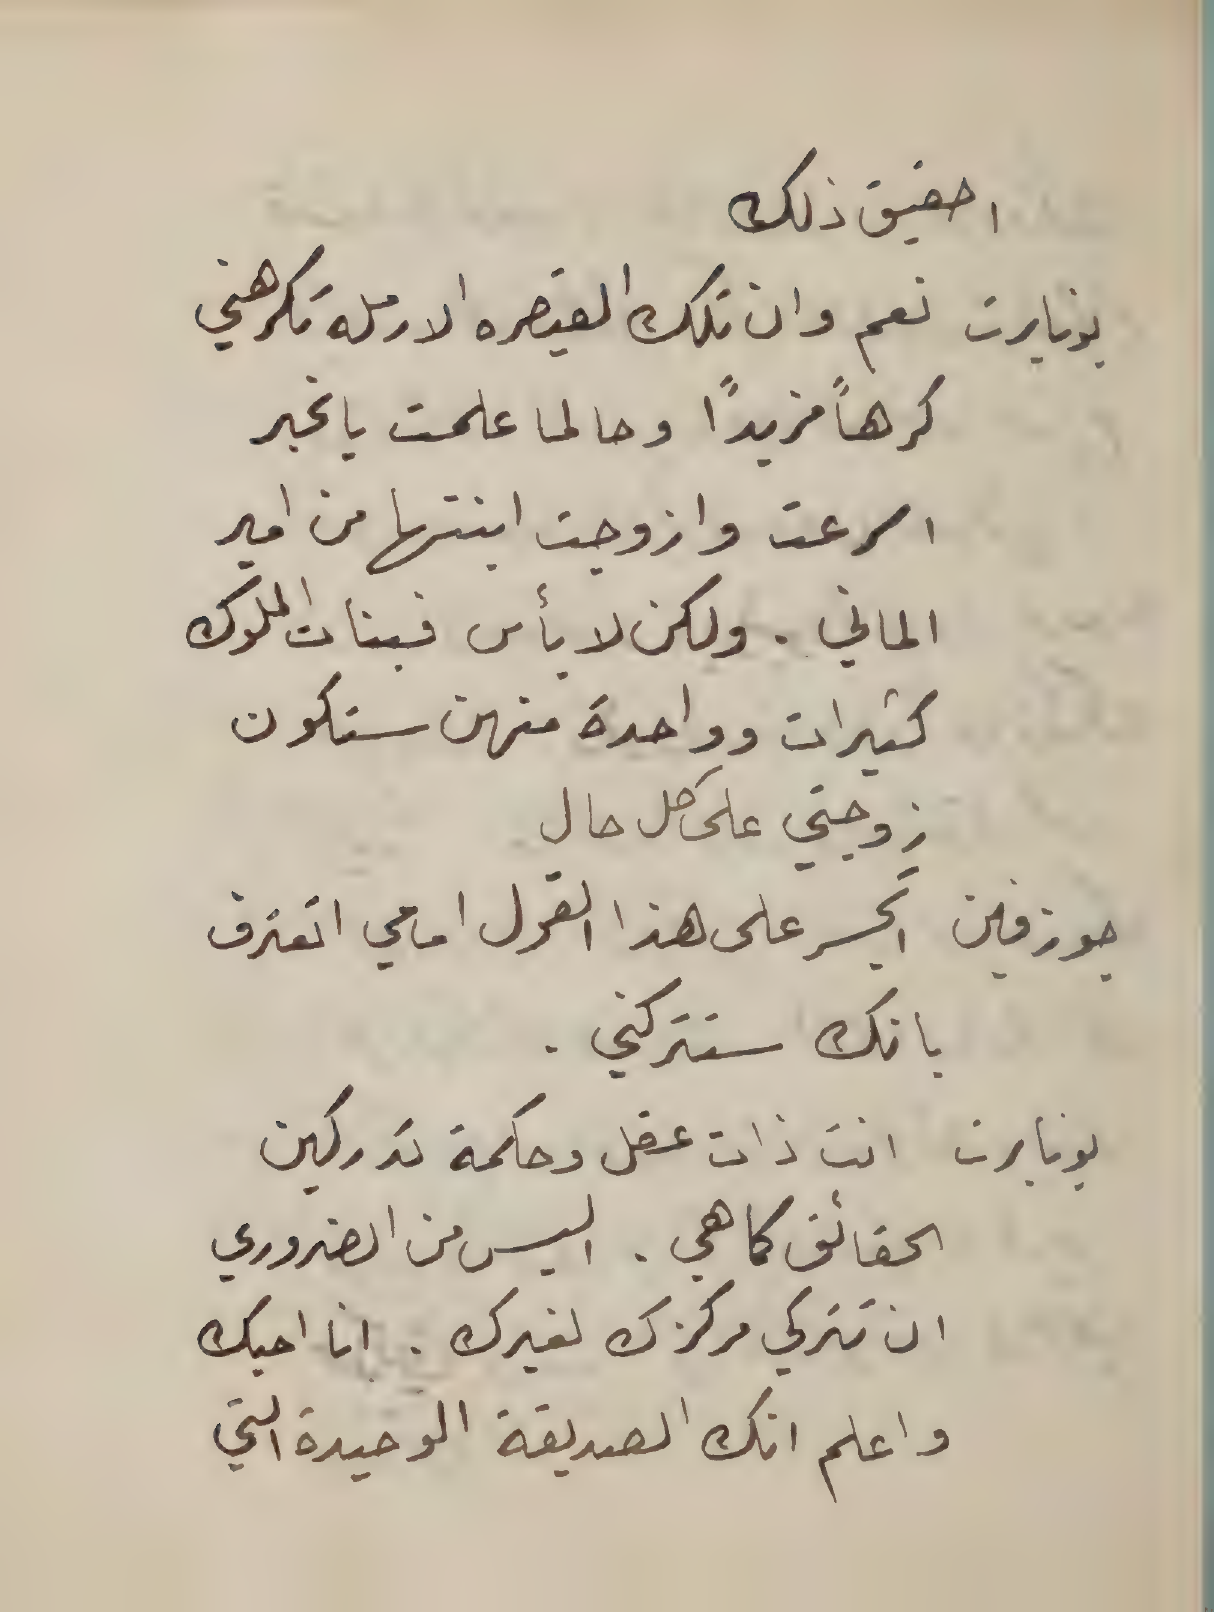 احقيق ذلك
بونابرت نعم وان تلك القيصره الارمله تكرهني
كرهاً مزيدًا وحالما علمت بالخبر
اسرعت وازوجت ابنتها من امير
الماني . ولكن لا بأس فبنات الملوك
كثيرات وواحدة منهن ستكون
زوجتي على كل حال
جوزفين اتجسر على هذا القول امامي اتعترف
بانك ستتركني .
بونابرت انت ذات عقل وحكمة تدركين
الحقائق كما هي . اليس من الضروري
ان تتركي مركزك لغيرك . انا احبك
واعلم انك الصديقة الوحيدة التي